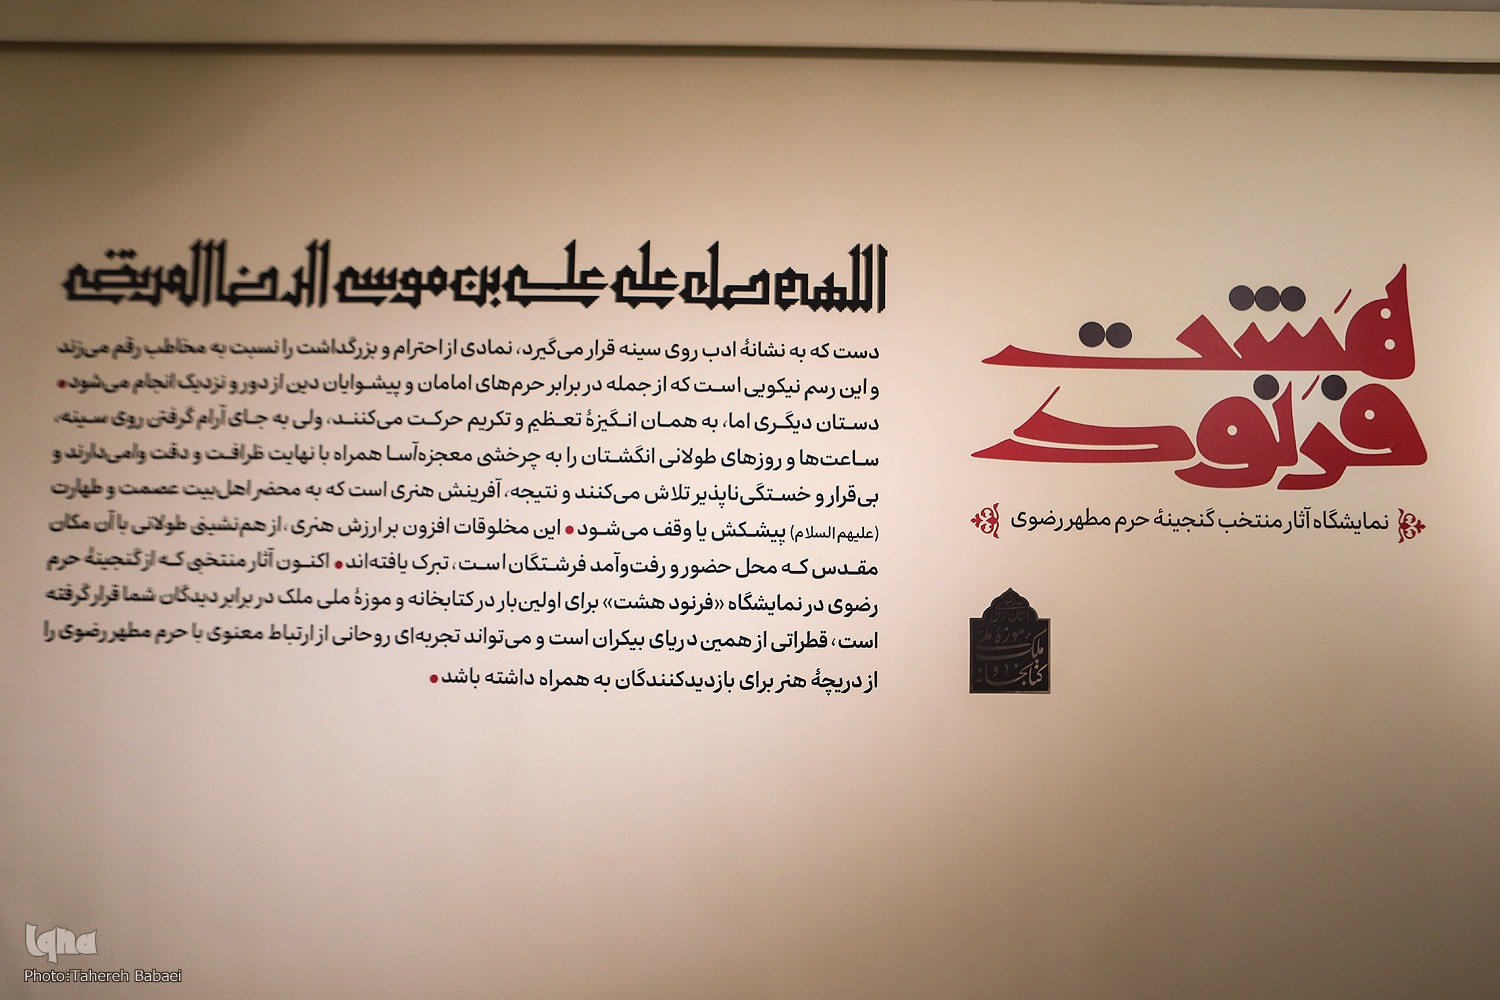 هشت
فرنود
نمایشگاه آثار منتخب گنجینهٔ حرم مطهر رضوی
موزهٔ ملی
ملک
کتابخانه و
اللهم صل علی علی بن موسی الرضا المرتضی
دست که به نشانهٔ ادب روی سینه قرار می‌گیرد، نمادی از احترام و بزرگداشت را نسبت به مخاطب رقم می‌زند
و این رسم نیکویی است که از جمله در برابر حرم‌های امامان و پیشوایان دین از دور و نزدیک انجام می‌شود●
دستان دیگری اما، به همان انگیزهٔ تعظیم و تکریم حرکت می‌کنند، ولی به جای آرام گرفتن روی سینه،
ساعت‌ها و روزهای طولانی انگشتان را به چرخشی معجزه‌آسا همراه با نهایت ظرافت و دقت وامی‌دارند و
بی‌قرار و خستگی‌ناپذیر تلاش می‌کنند و نتیجه، آفرینش هنری است که به محضر اهل‌بیت عصمت و طهارت
(علیهم السلام) پیشکش یا وقف می‌شود● این مخلوقات افزون بر ارزش هنری، از هم‌نشینی طولانی با آن مکان
مقدس که محل حضور و رفت‌وآمد فرشتگان است، تبرک یافته‌اند● اکنون آثار منتخبی که از گنجینهٔ حرم
رضوی در نمایشگاه «فرنود هشت» برای اولین‌بار در کتابخانه و موزهٔ ملی ملک در برابر دیدگان شما قرار گرفته
است، قطراتی از همین دریای بیکران است و می‌تواند تجربه‌ای روحانی از ارتباط معنوی با حرم مطهر رضوی را
از دریچهٔ هنر برای بازدیدکنندگان به همراه داشته باشد●
Iqna
Photo:Tahereh Babaei